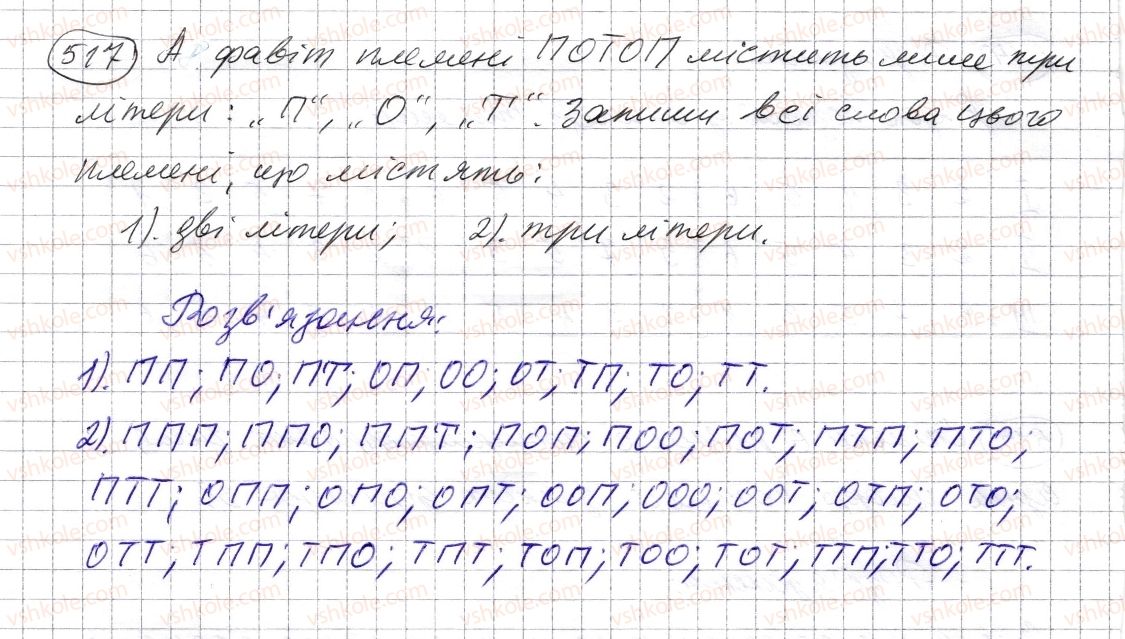 517 А фавіт племені ПОТОП містить лише три
літери: „П“, „О“, „Т“. Запиши всі слова цього
племені, що містять:
1). дві літери; 2). три літери.
Розв'язання:
1). ПП; ПО; ПТ; ОП; ОО; ОТ; ТП; ТО; ТТ.
2). ППП; ППО; ППТ; ПОП; ПОО; ПОТ; ПТП; ПТО;
ПТТ; ОПП; ОПО; ОПТ; ООП; ООО; ООТ; ОТП; ОТО;
ОТТ; ТПП; ТПО; ТПТ; ТОП; ТОО; ТОТ; ТТП; ТТО; ТТТ.